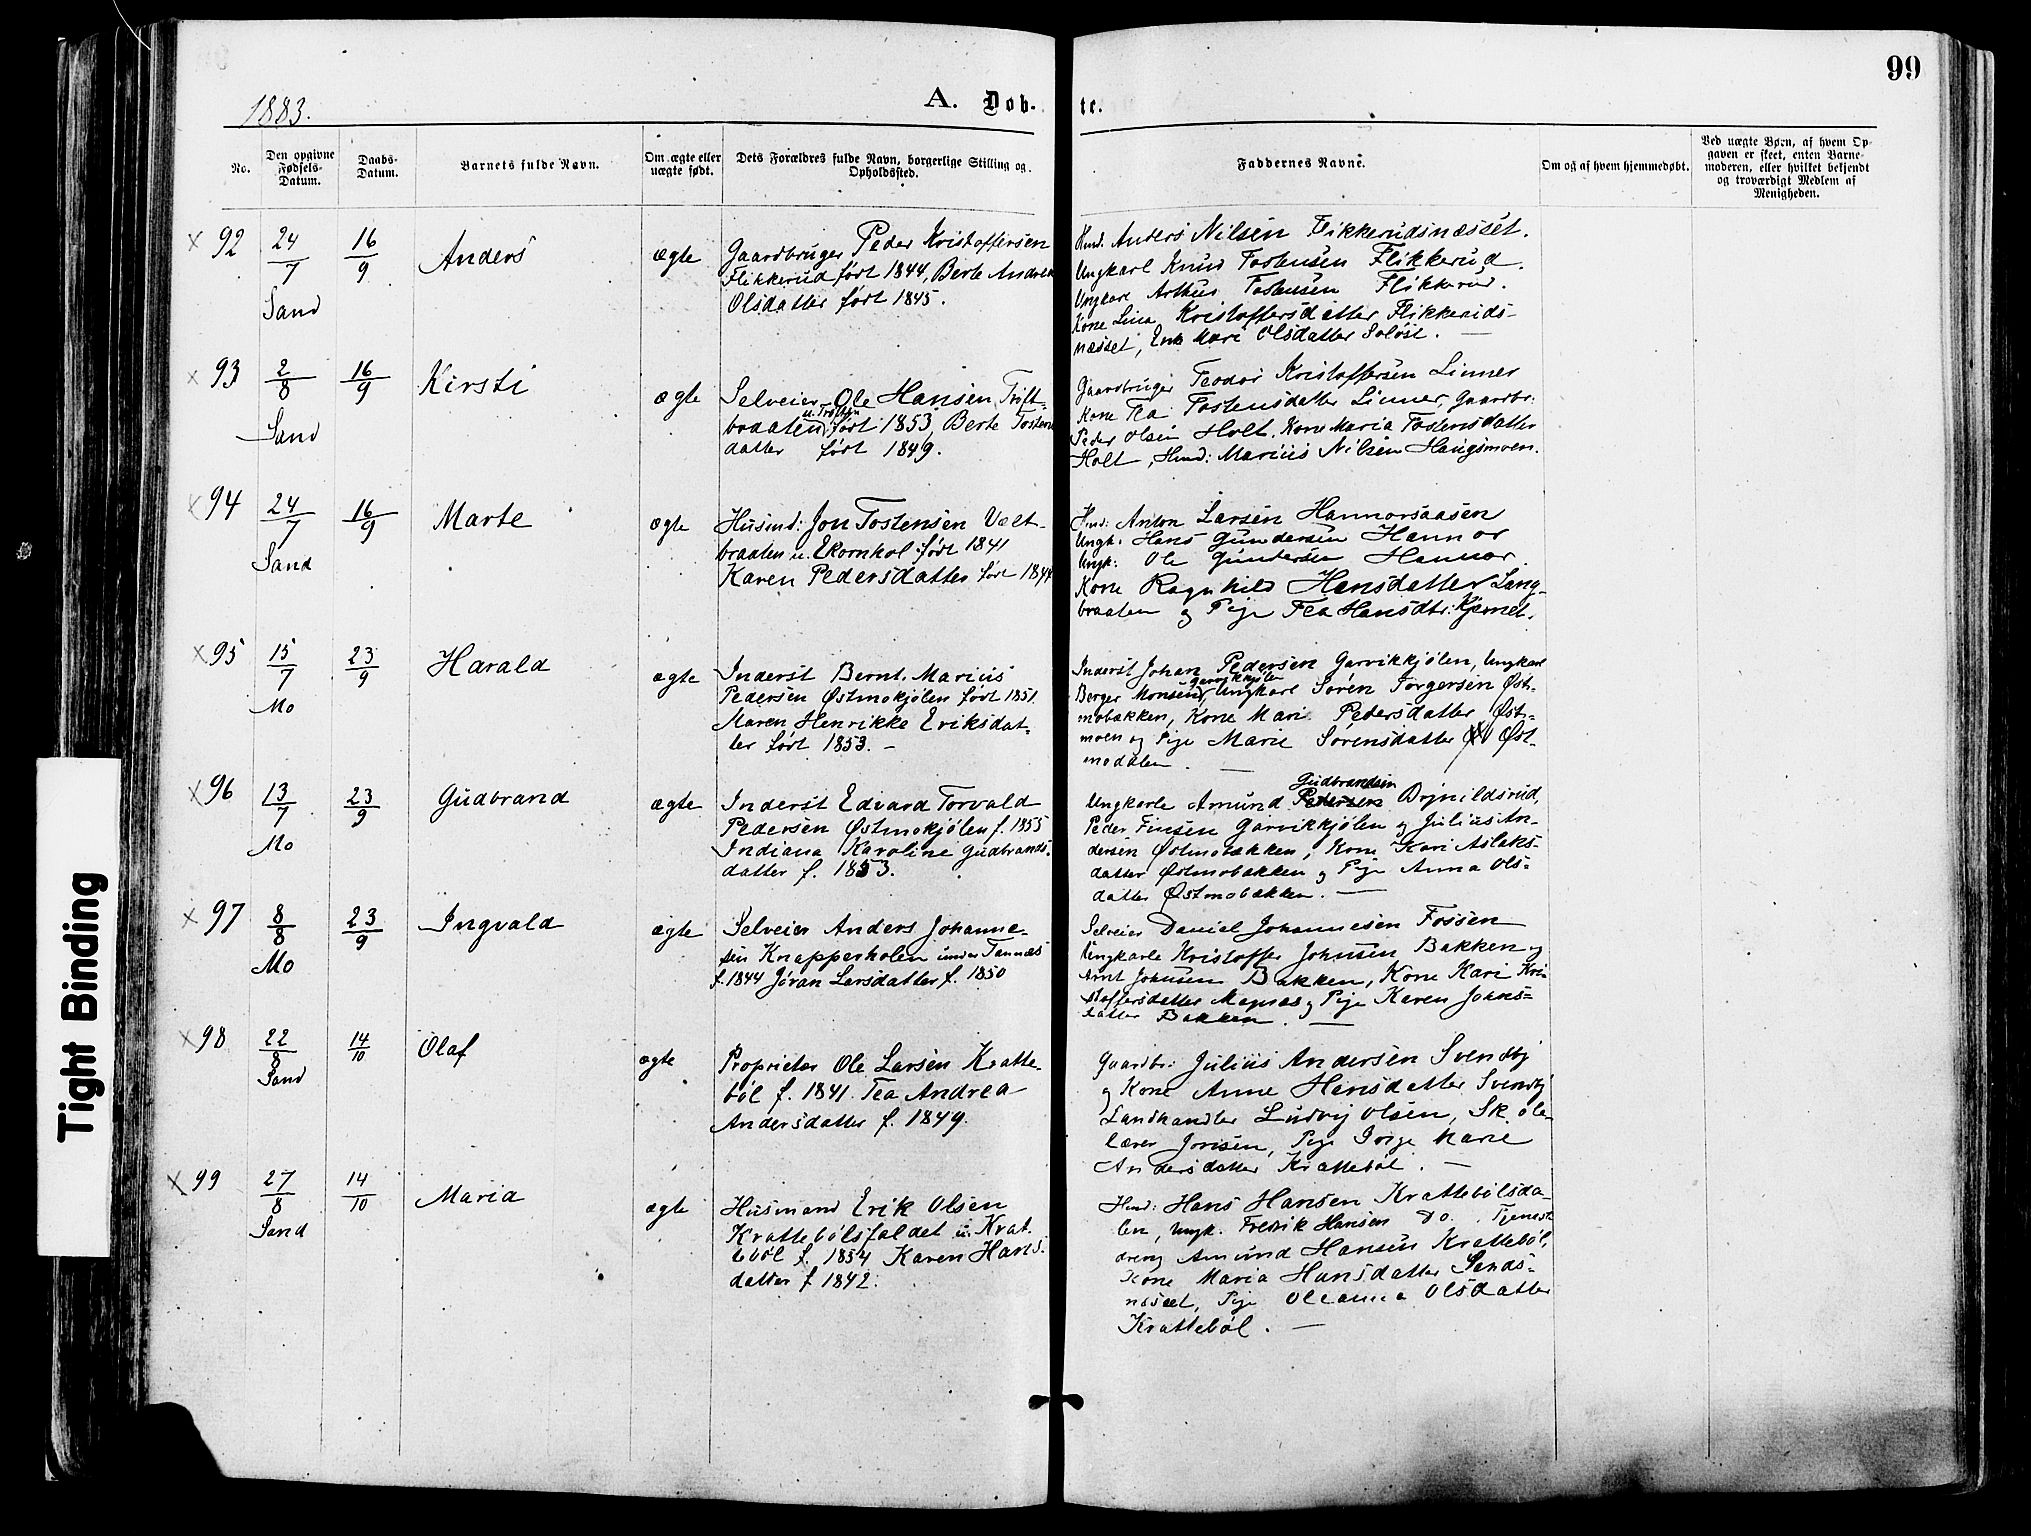 99
1883.
A. Døb-
te.
No.
Den opgivne
Fødsels-
Datum.
Daabs-
Datum.
Barnets fulde Navn.
Om ægte eller
uægte født.
Dets Forældres fulde Navn, borgerlige Stilling og
Opholdssted.
Faddernes Navne.
Om og af hvem hjemmedøbt.
Ved uægte Børn, af hvem Op-
gaven er skeet, enten Barne-
moderen, eller hvilket bekjendt
og troværdigt Medlem af
Menigheden.
× 92
24/7
Sand
16/9
Anders
ægte
Gaardbruger Peder Kristoffersen
Flikkerud født 1844, Berte Andrea
Olsdatter født 1845.
Hmd: Anders Nilsen Flikkerudsnæsset.
Ungkarl Knud Tostensen Flikkerud.
Ungkarl Arthur Tostensen Flikkerud.
Kone Lina Kristoffersdatter Flikkeruds-
næsset, Enk Mari Olsdatter Soløst. —
× 93
2/8
Sand
16/9
Kirsti
ægte
Selveier Ole Hansen Trøft-
u. Trøften
braaten, født 1853, Berte Tostens
datter født 1849.
Gaardbruger Teodor Kristoffersen Linner
Kone Tea Tostensdatter Linner, Gaardbr:
Peder Olsen Holt. Kone Maria Tostensdatter
Holt, Hmd: Marius Nilsen Haugsmoen.
× 94
24/7
Sand
16/9
Marte
ægte
Husmd: Jon Tostensen Vælt-
braaten u. Ekornhol født 1841
Karen Pedersdatter født 1844
Hmd: Anton Larsen Hannorsaasen
Ungk: Hans Gundersen Hannor
Ungk: Ole Gundersen Hannor.
Kone Ragnhild Hansdatter Lang-
braaten og Pige Tea Hansdtr: Kjernet.
× 95
15/7
Mo
23/9
Harald
ægte
Inderst Bernt Marius
Pedersen Østmokjølen født 1851.
Maren Henrikke Eriksdat-
ter født 1853. —
Inderst Johan Pedersen Garvikkjølen, Ungkarl
Garvikkjølen
Berger Monsen, Ungkarl Søren Torgersen Øst-
mobækken, Kone Mari Pedersdatter Øst-
moen og Pige Marie Sørensdatter Øst-
modalen. —
× 96
13/7
Mo
23/9
Gudbrand
ægte
Inderst Edvard Torvald
Pedersen Østmokjølen f. 1855
Indiana Karoline Gudbrands-
datter f. 1853.
Gudbrandsen
Ungkarle Amund Pedersen Brynildsrud,
Peder Finsen Garvikkjølen og Julius An-
dersen Østmobækken, Kone Kari Aslaks-
datter Østmobækken og Pige Anna Ols-
datter Østmobækken. —
× 97
8/8
Mo
23/9
Ingvald
ægte
Selveier Anders Johanne-
sen Knapperholen under Tannæs
f. 1844 Jøran Larsdatter f. 1850
Selveier Daniel Johannesen Fossen
Ungkarle Kristoffer Johnsen Bakken og
Arnt Johnsen Bakken, Kone Kari Kri-
stoffersdatter Møgnæs og Pige Karen Johns-
datter Bakken. —
× 98
22/8
Sand
14/10
Olaf
ægte
Proprietær Ole Larsen Kratte-
bøl f. 1841. Tea Andrea
Andersdatter f. 1849.
Gaardbr: Julius Andersen Svendby
og Kone Anne Hansdatter Svendby
Landhandler Ludvig Olsen, Skole-
lærer Jonsen, Pige Inge Marie
Andersdatter Krattebøl. —
× 99
27/8
Sand
14/10
Maria
ægte
Husmand Erik Olsen
Krattebølsfaldet u. Krat-
tebøl f. 1854 Karen Hans-
datter f 1842.
Hmd: Hans Hansen Krattebølsda-
len, Ungk. Fredrik Hansen Do. Tjeneste
dreng Amund Hansen Krattebøl,
Kone Maria Hansdatter Sands-
næsset, Pige Oleanna Olsdatter
Krattebøl. —
Tight Binding